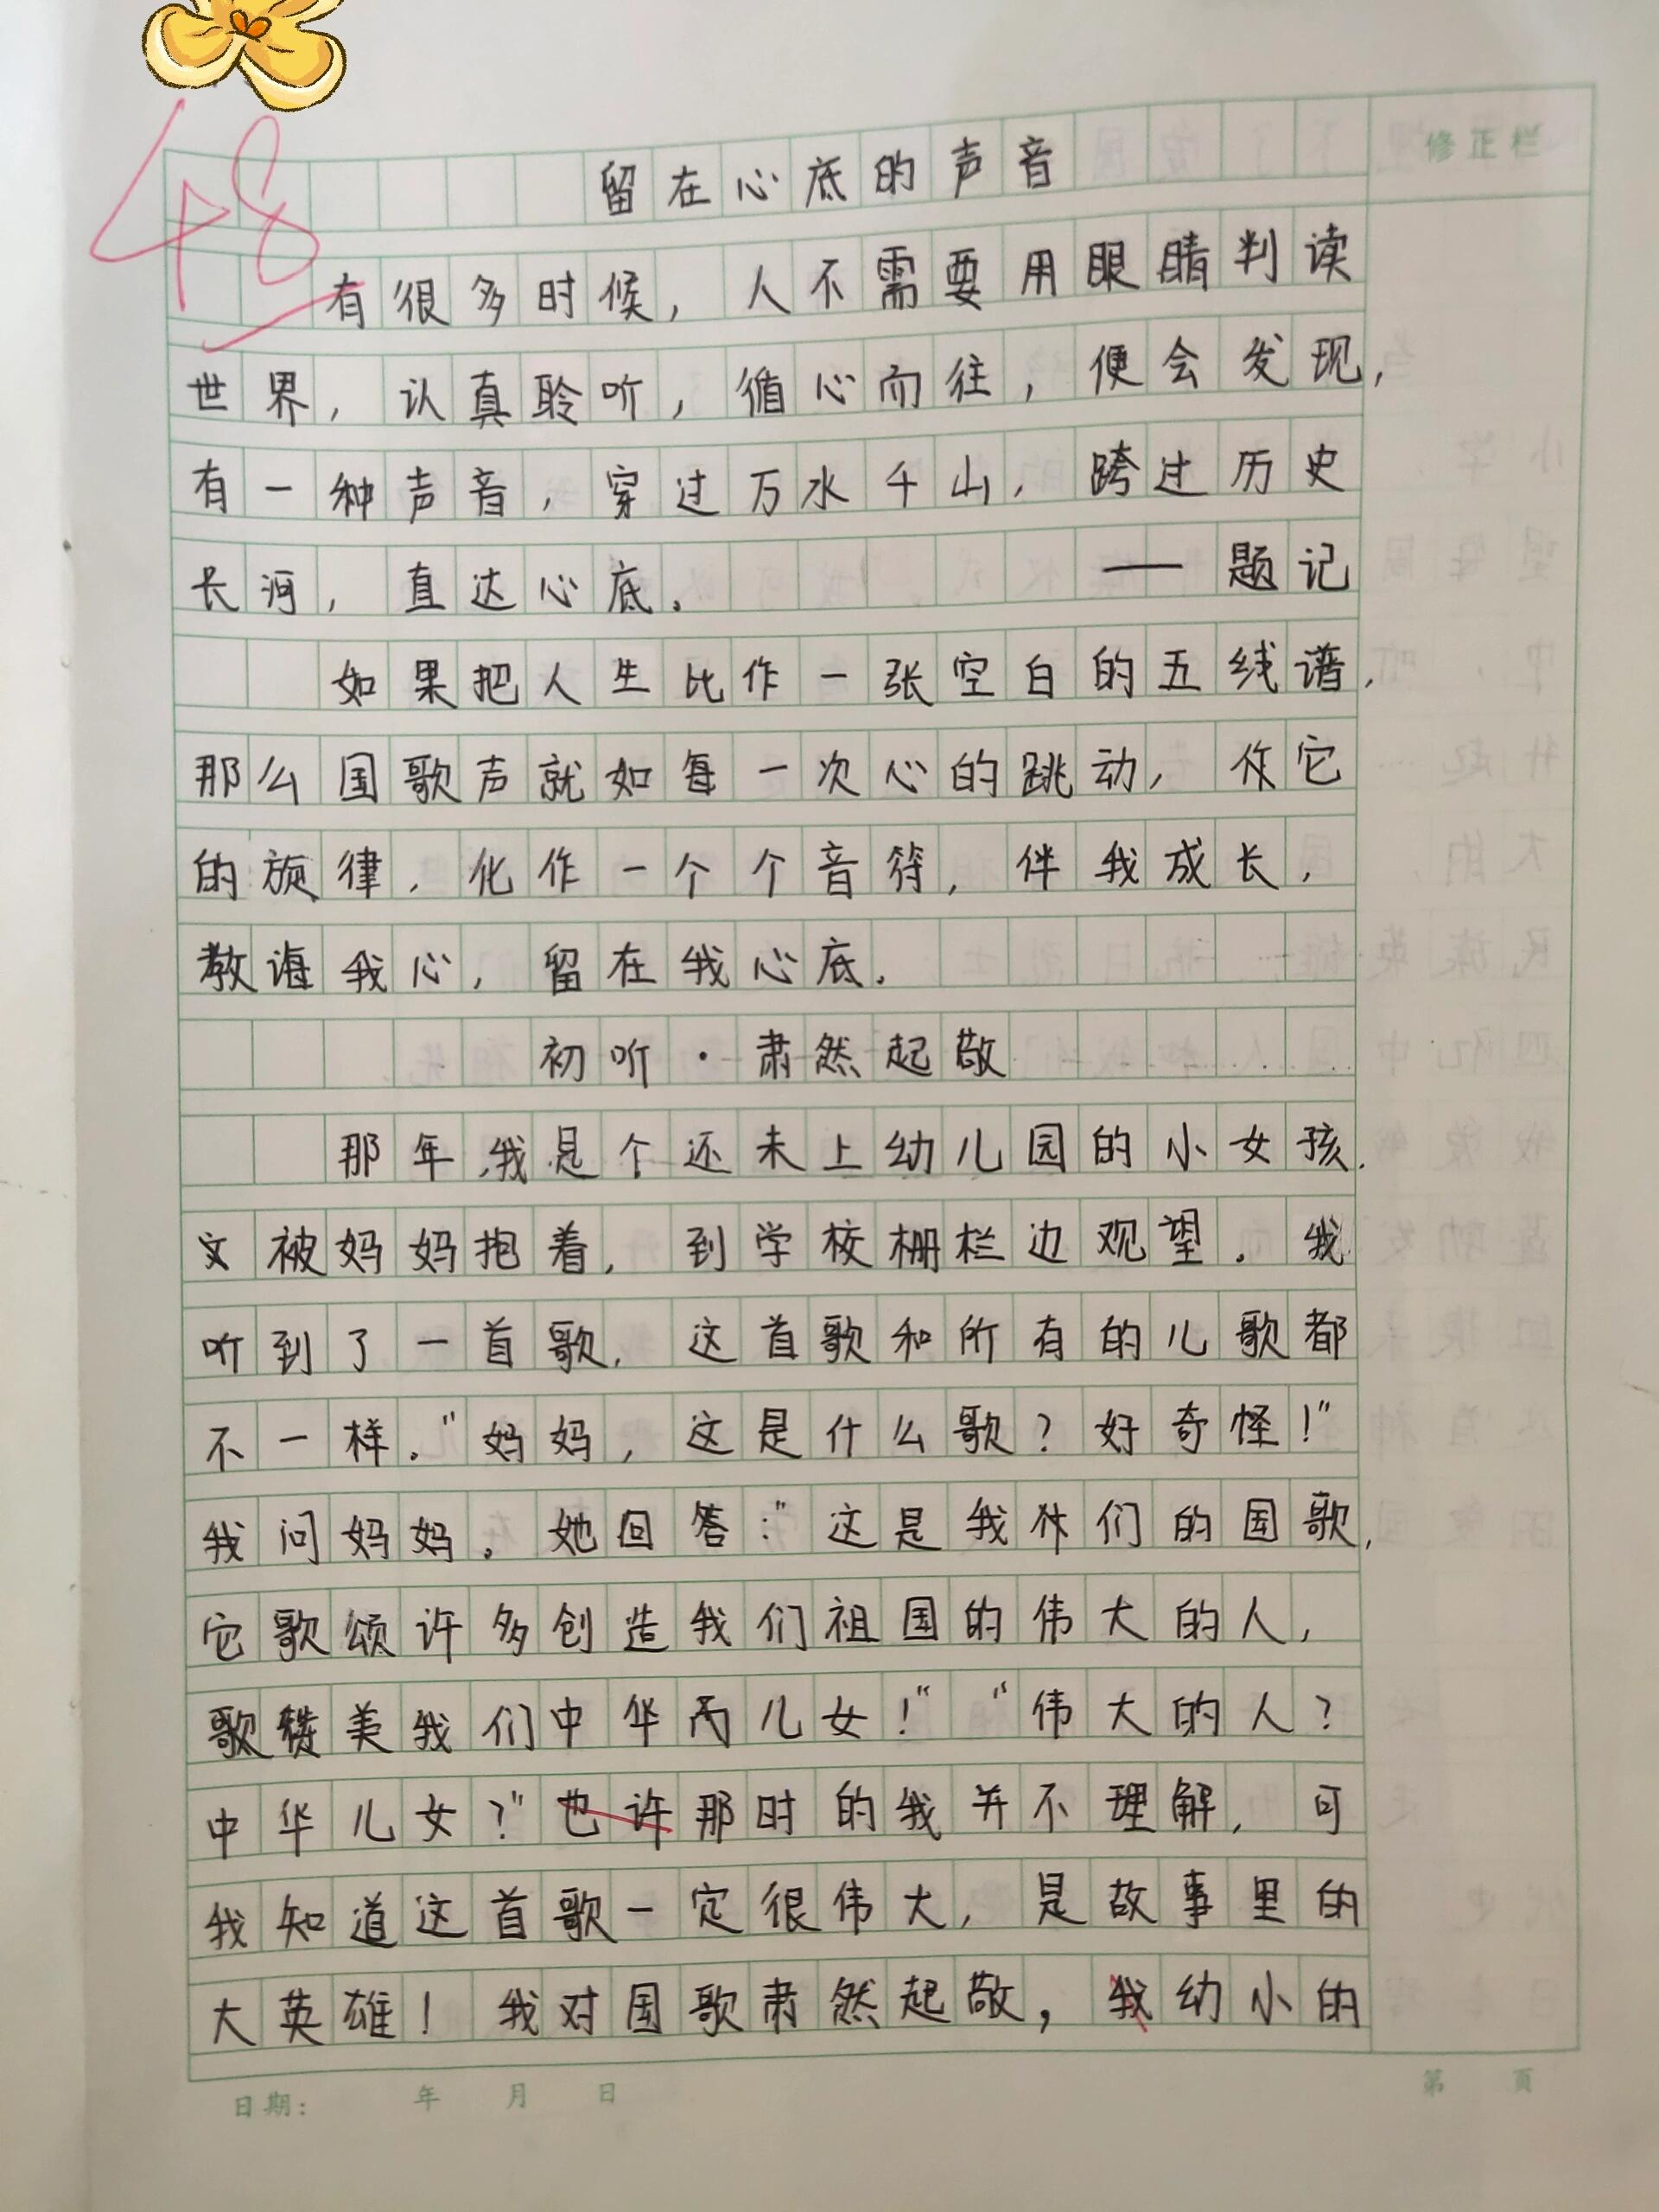 48
留在心底的声音
修正栏
有很多时候，人不需要用眼睛判读
世界，认真聆听，循心而往，便会发现，
有一种声音，穿过万水千山，跨过历史
长河，直达心底。——题记
如果把人生比作一张空白的五线谱，
那么国歌声就如每一次心的跳动，作它
的旋律，化作一个个音符，伴我成长，
教诲我心，留在我心底。
初听·肃然起敬
那年，我是个还未上幼儿园的小女孩，
被妈妈抱着，到学校栅栏边观望。我
听到了一首歌，这首歌和所有的儿歌都
不一样。“妈妈，这是什么歌？好奇怪！”
我问妈妈。她回答：“这是我们的国歌，
它歌颂许多创造我们祖国的伟大的人，
歌赞美我们中华儿女！”“伟大的人？
中华儿女？”也许那时的我并不理解，可
我知道这首歌一定很伟大，是故事里的
大英雄！我对国歌肃然起敬，我幼小的
日期： 年 月 日
第 页